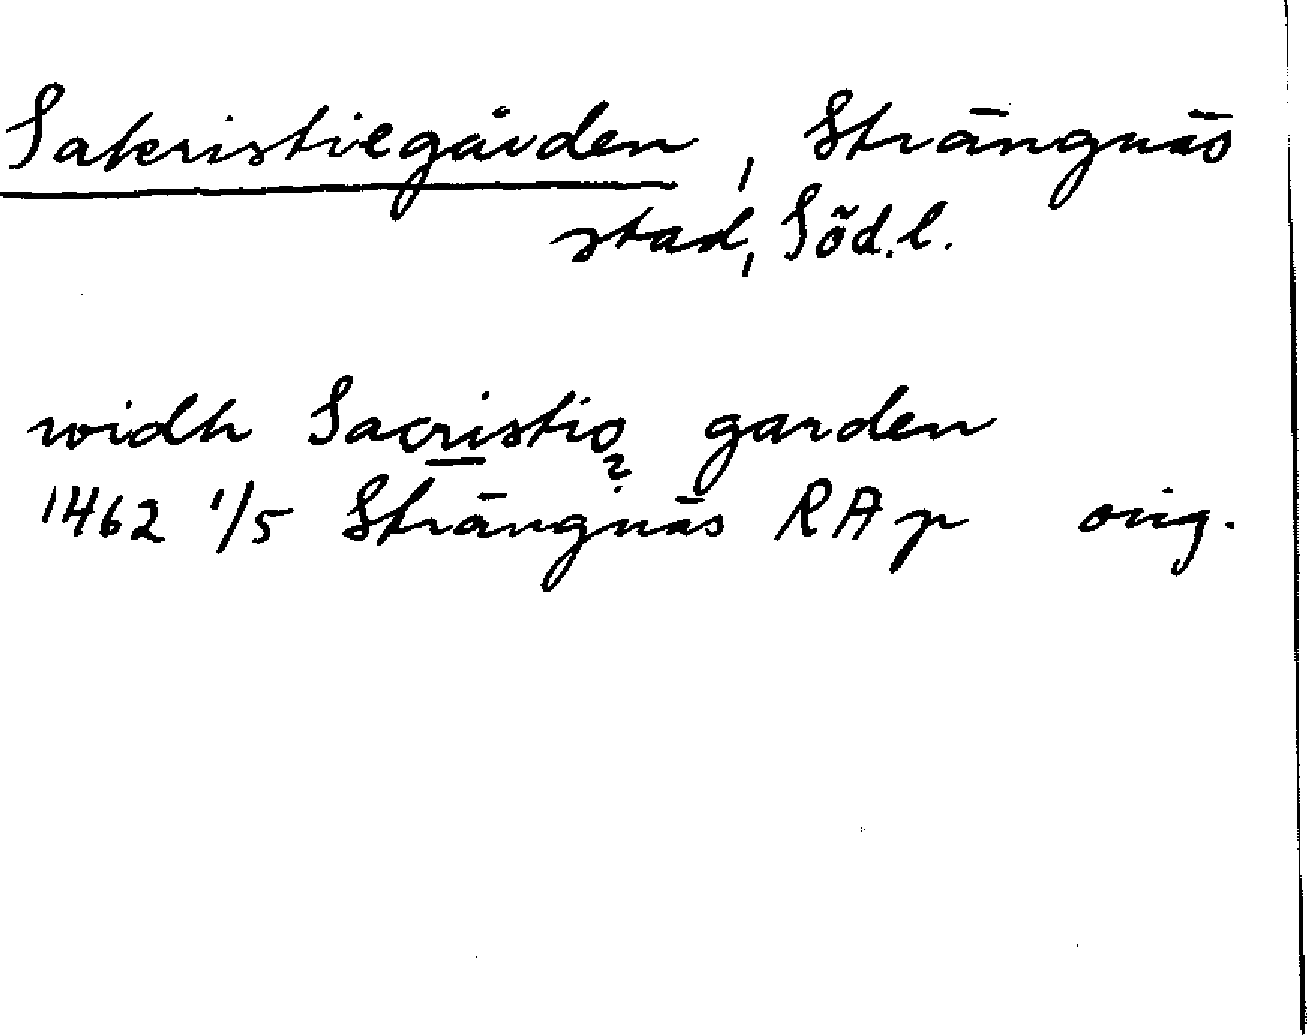 Sakristiegården, Strängnäs
stad, Söd.l.
widh Sacristio garden
?
1462 1/5 Strängnäs RAp orig.